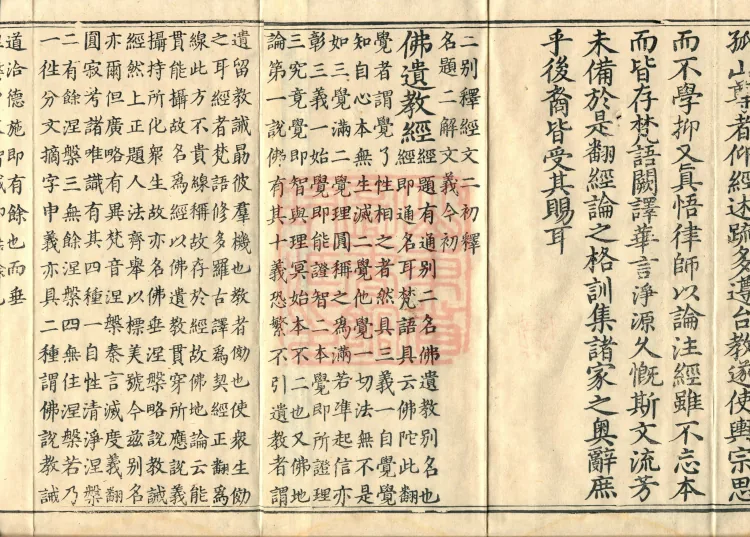 孤山者仰經述疏多遵台教遂使輿宗思
而不學抑又真悟律師以論注經雖不忘本
而皆存梵語闕譯華言淨源久慨斯文流芳
未備於是翻經論之格訓集諸家之奧辭庶
乎後裔皆受其賜耳
二別釋經文二初釋
名題二解文義今初
佛遺教經
經題有通別二名佛遺教別名也
經即通名耳梵語具云佛陀此翻
覺者謂覺了性相之者然具三義一自覺覺
知自心本無生滅二覺他覺一切法無不是
如三覺滿二覺理圓稱之為滿若準起信亦
彰三義一始覺即能證智二本覺即所證理
三究竟覺即智與理冥始本不二也又佛地
論第一說佛有其十義恐繁不引遺教者謂
遺留教誡最彼羣機也教者俲也使衆生俲
之耳經者梵語修多羅古譯為契經正翻為
線此方不貴線稱故存於經故佛地論云能
貫能攝故名為經以佛遺教貫穿所應說義
攝持所化衆生故亦名佛垂涅槃略說教誡
經然上正題人法齊舉以標美號今玆別名
亦爾但廣略有異梵音涅槃秦言滅度義翻
圓寂考諸唯識有其四種一自性清淨涅槃
二有餘涅槃三無餘涅槃四無住涅槃若乃
一徃分文摘字申義亦具二種謂佛說教誡
道洽德施即有餘也而垂